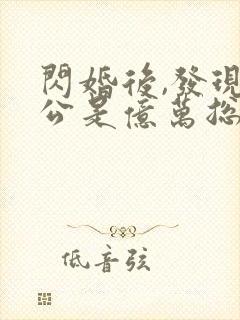 閃婚後,發現
公是億萬總
低音弦